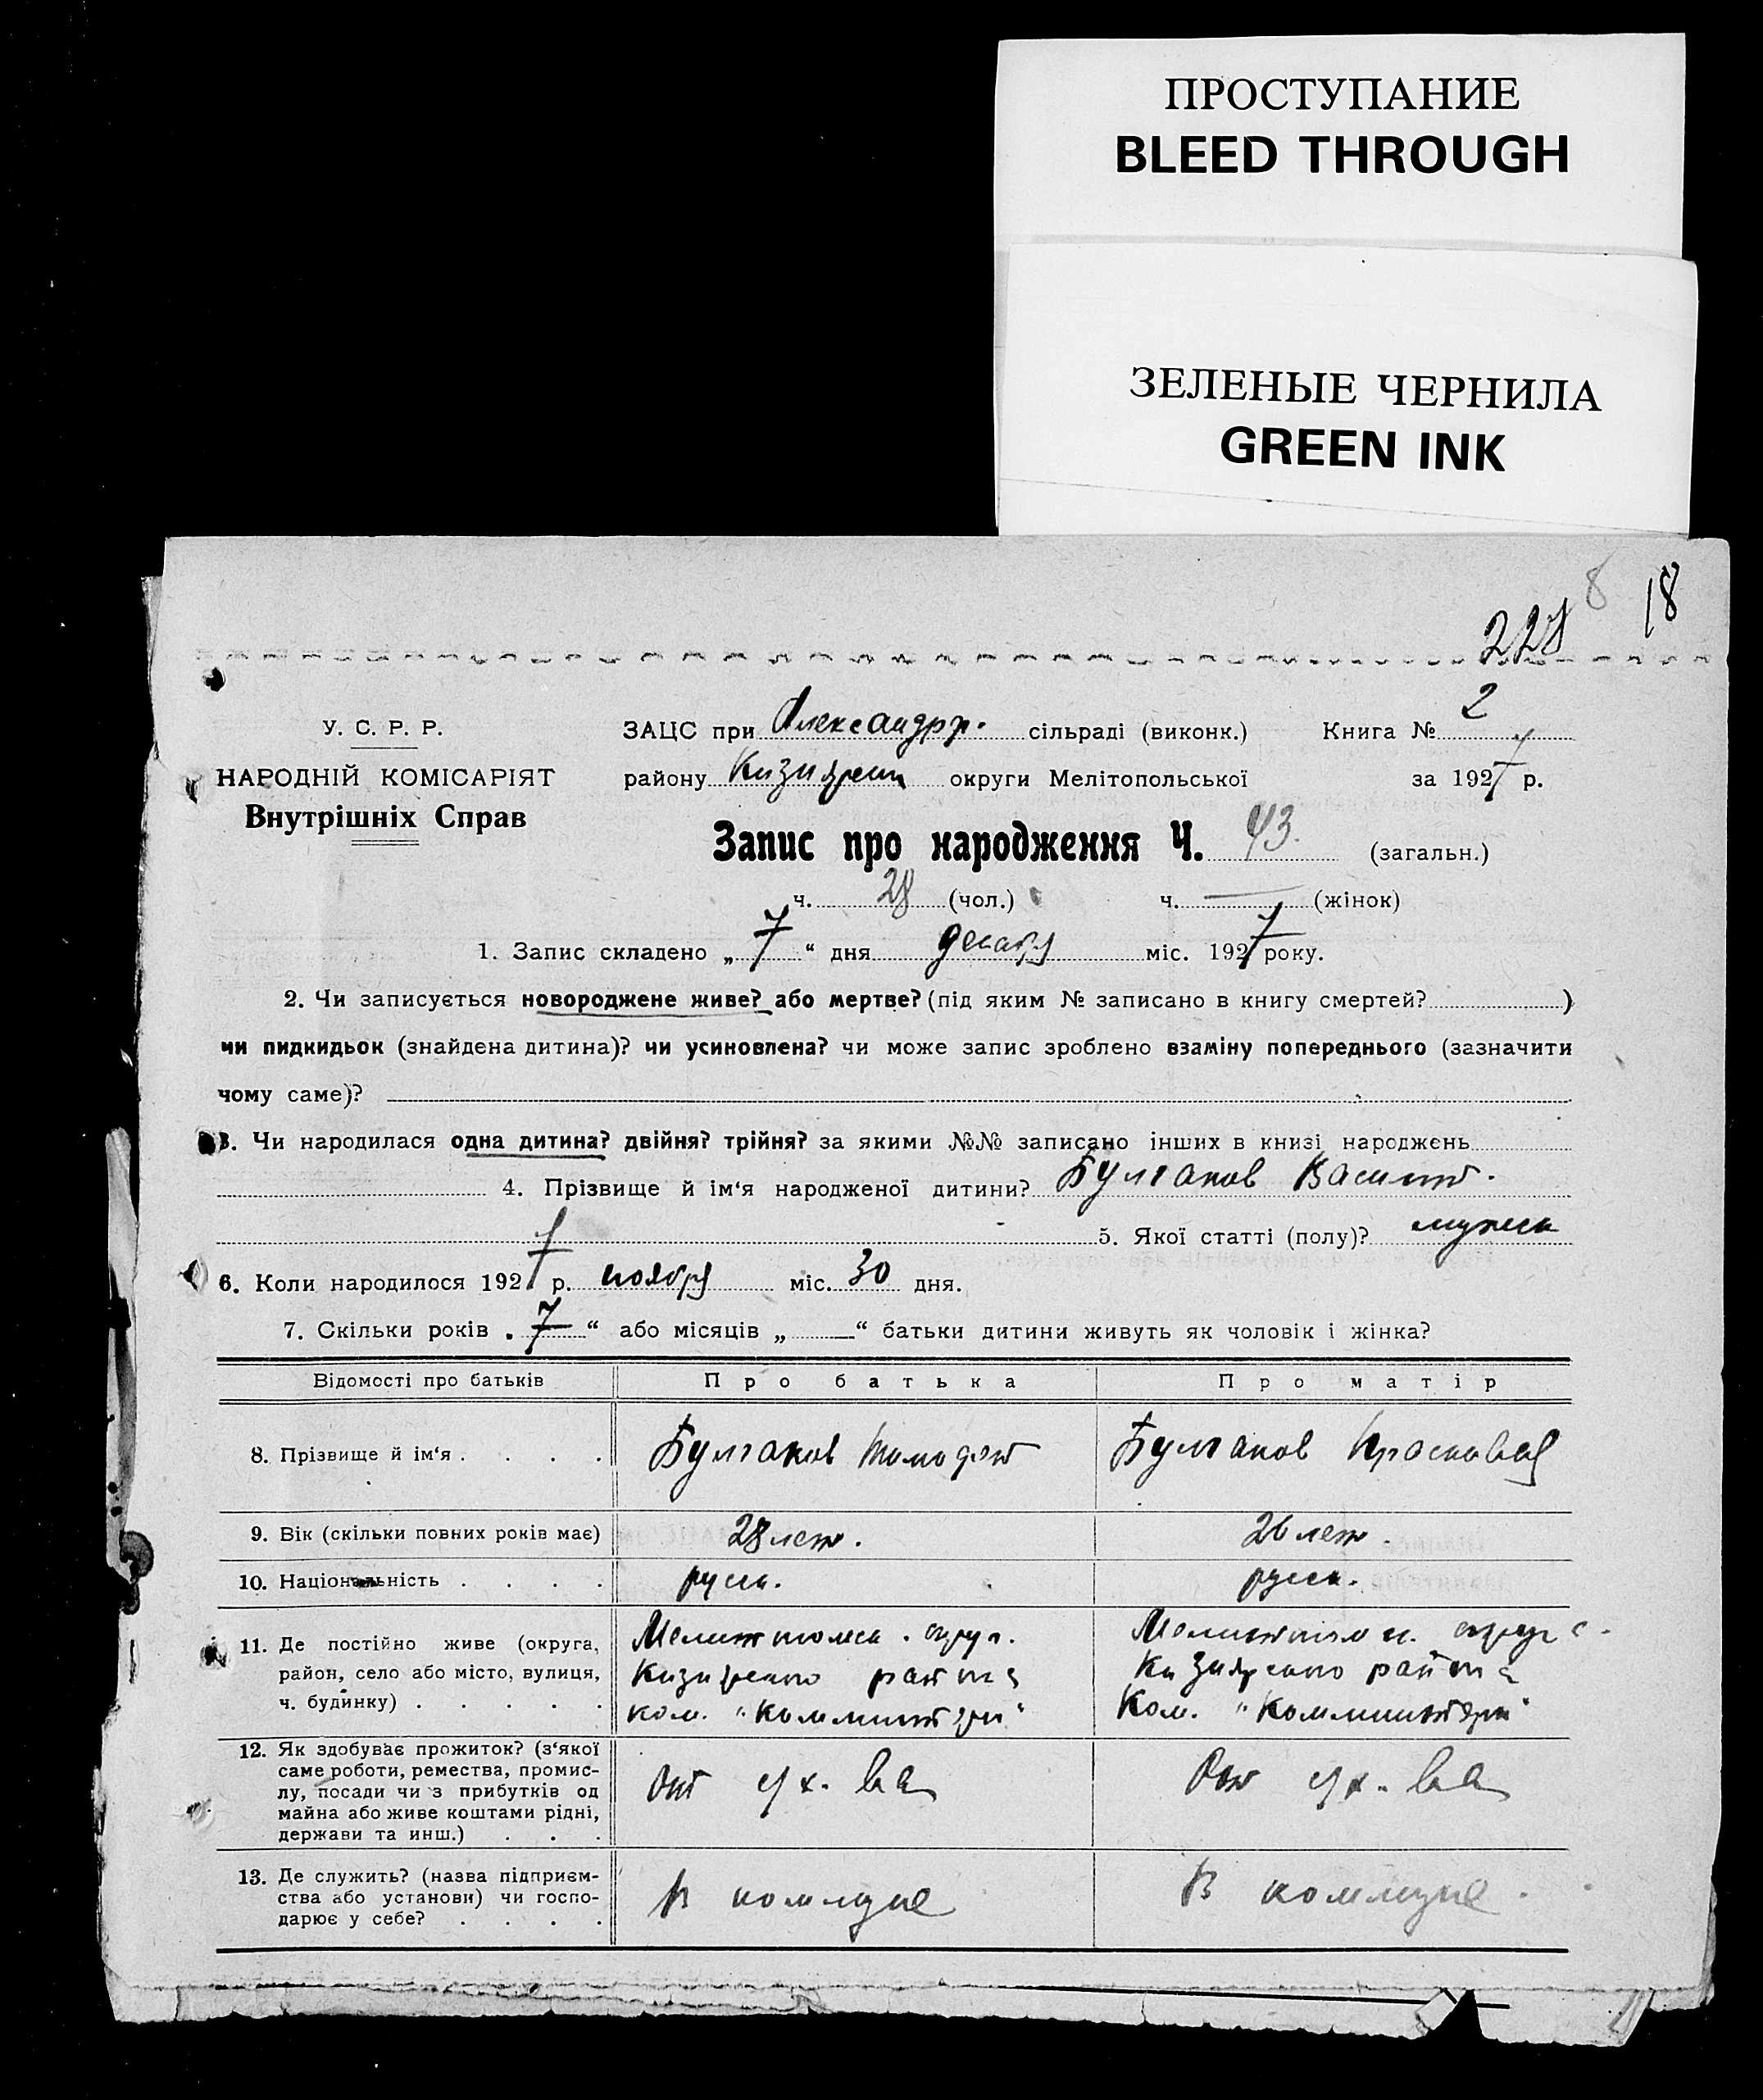 ПРОСТУПАНИЕ
BLEED THROUGH
ЗЕЛЕНЫЕ ЧЕРНИЛА
GREEN INK
8 18
228
У. С. Р. Р.
НАРОДНІЙ КОМІСАРІЯТ
Внутрішніх Справ
ЗАЦС при Александр. сільраді (виконк.) Книга № 2
району округи Мелітопольської за 1927 р.
Запис про народження Ч. 43. (загальн.)
ч. 28 (чол.) ч. — (жінок)
1. Запис складено „ 7 “ дня декабр міс. 1927 року.
2. Чи записується новороджене живе? або мертве? (під яким № записано в книгу смертей? )
чи пидкидьок (знайдена дитина)? чи усиновлена? чи може запис зроблено взаміну попереднього (зазначити
чому саме)?
3. Чи народилася одна дитина? двійня? трійня? за якими №№ записано інших в книзі народжень
4. Прізвище й ім‘я народженої дитини? Булгаков
5. Якої статті (полу)? мужск
6. Коли народилося 1927 р. ноября міс. 30 дня.
7. Скільки років „ 7 “ або місяців „ — “ батьки дитини живуть як чоловік і жінка?
Відомості про батьків Про батька Про матір
8. Прізвище й ім‘я . . . . Булгаков Булгаков Прасковея
9. Вік (скільки повних років має) 28 лет. 26 лет.
10. Національність . . . . русск. русск.
11. Де постійно живе (округа,
район, село або місто, вулиця,
ч. будинку) . . . . .
Мелитопольск. округ.
района
ком. "Комминтерн"
Мелитопольск. округ
района
Ком. "Комминтерн"
12. Як здобуває прожиток? (з‘якої
саме роботи, ремества, промис-
лу, посади чи з прибутків од
майна або живе коштами рідні,
держави та инш.) . . .
От с/х. ва
От с/х. ва
13. Де служить? (назва підприєм-
ства або установи) чи госпо-
дарює у себе? . . . .
В коммуне
В коммуне.